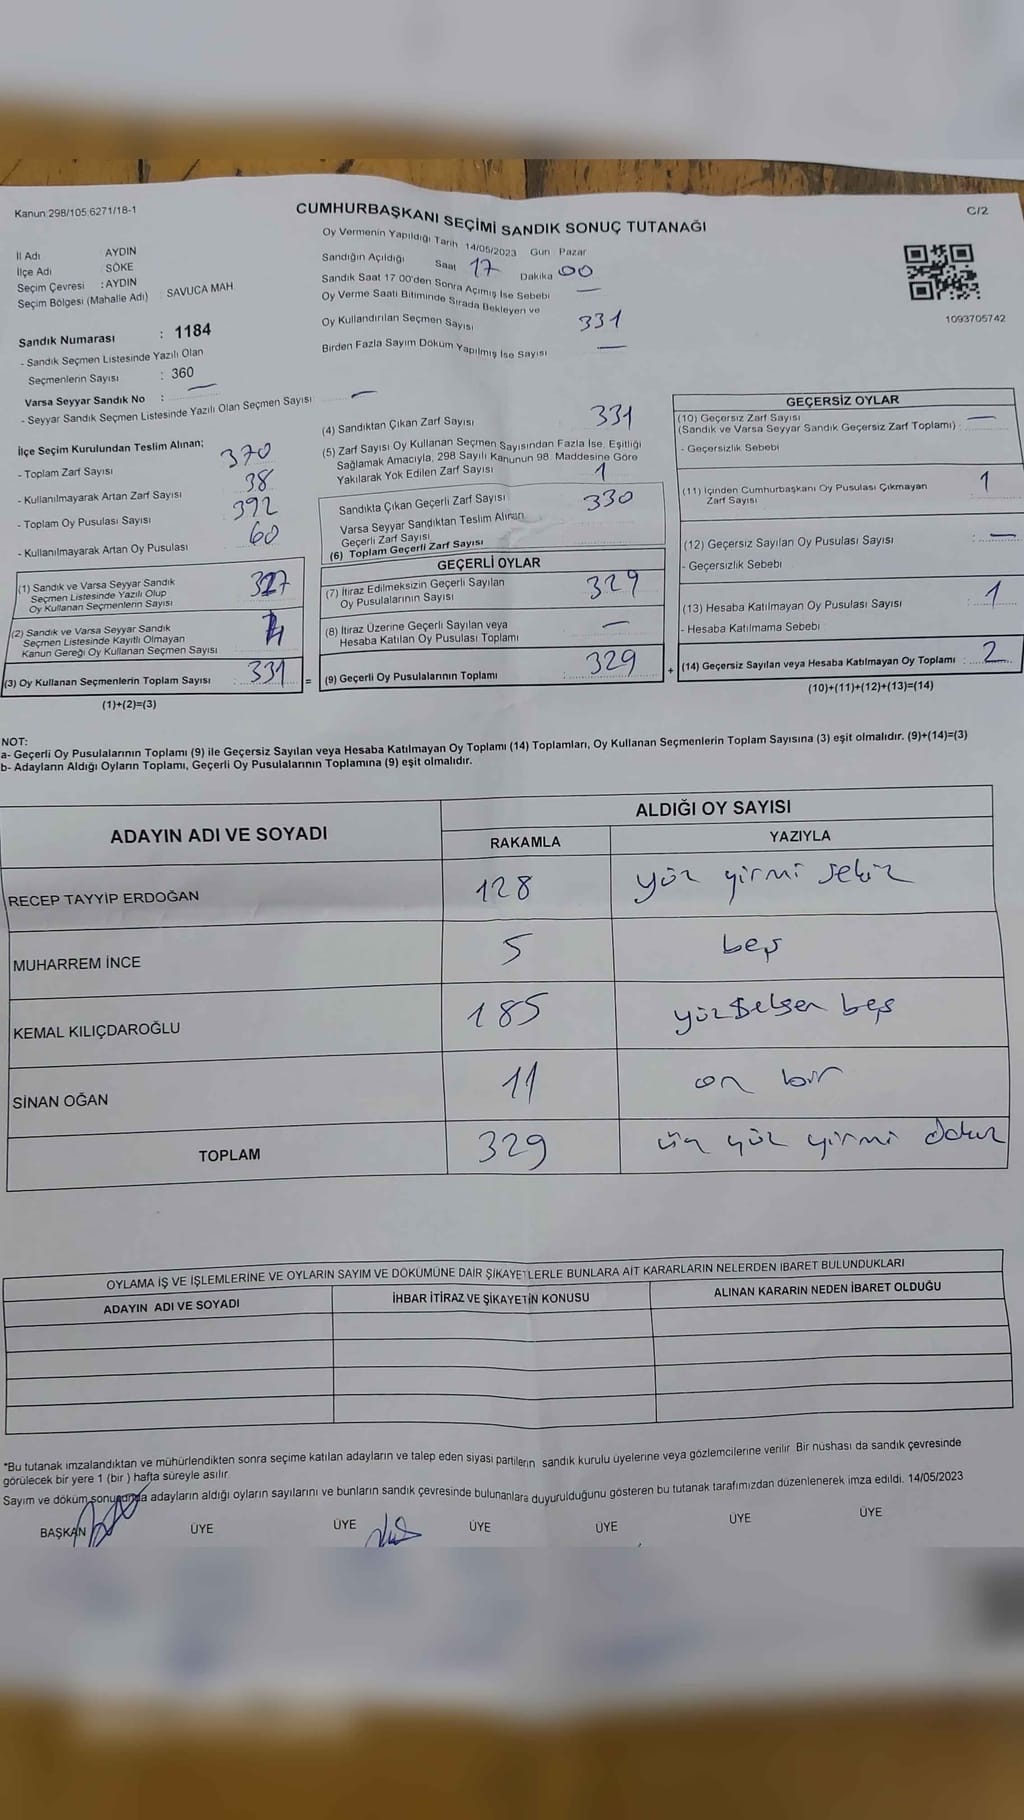 Kanun 298/105 6271/18-1
CUMHURBAŞKANI SEÇİMİ SANDIK SONUÇ TUTANAĞI
C/2
İl Adı : AYDIN
İlçe Adı : SÖKE
Seçim Çevresi : AYDIN
Seçim Bölgesi (Mahalle Adı) : SAVUCA MAH.
Oy Vermenin Yapıldığı Tarih 14/05/2023 Gün Pazar
Sandığın Açıldığı Saat 17 Dakika 00
Sandık Saat 17 00'den Sonra Açımış İse Sebebi —
Oy Verme Saati Bitiminde Sırada Bekleyen ve
Oy Kullandırılan Seçmen Sayısı 331
Birden Fazla Sayım Döküm Yapılmış İse Sayısı —
1093705742
Sandık Numarası : 1184
- Sandık Seçmen Listesinde Yazılı Olan
Seçmenlerin Sayısı : 360
Varsa Seyyar Sandık No : —
- Seyyar Sandık Seçmen Listesinde Yazılı Olan Seçmen Sayısı —
İlçe Seçim Kurulundan Teslim Alınan;
- Toplam Zarf Sayısı 370
- Kullanılmayarak Artan Zarf Sayısı 38
- Toplam Oy Pusulası Sayısı 392
- Kullanılmayarak Artan Oy Pusulası 60
(1) Sandık ve Varsa Seyyar Sandık
Seçmen Listesinde Yazılı Olup
Oy Kullanan Seçmenlerin Sayısı 327
(2) Sandık ve Varsa Seyyar Sandık
Seçmen Listesinde Kayıtlı Olmayan
Kanun Gereği Oy Kullanan Seçmen Sayısı 4
(3) Oy Kullanan Seçmenlerin Toplam Sayısı : 331 =
(1)+(2)=(3)
(4) Sandıktan Çıkan Zarf Sayısı 331
(5) Zarf Sayısı Oy Kullanan Seçmen Sayısından Fazla İse, Eşitliği
Sağlamak Amacıyla, 298 Sayılı Kanunun 98. Maddesine Göre
Yakılarak Yok Edilen Zarf Sayısı 1
Sandıkta Çıkan Geçerli Zarf Sayısı 330
Varsa Seyyar Sandıktan Teslim Alınan
Geçerli Zarf Sayısı
(6) Toplam Geçerli Zarf Sayısı
GEÇERLİ OYLAR
(7) İtiraz Edilmeksizin Geçerli Sayılan
Oy Pusulalarının Sayısı 329
(8) İtiraz Üzerine Geçerli Sayılan veya
Hesaba Katılan Oy Pusulası Toplamı —
(9) Geçerli Oy Pusulalarının Toplamı : 329 +
GEÇERSİZ OYLAR
(10) Geçersiz Zarf Sayısı
(Sandık ve Varsa Seyyar Sandık Geçersiz Zarf Toplamı) : —
- Geçersizlik Sebebi
(11) İçinden Cumhurbaşkanı Oy Pusulası Çıkmayan
Zarf Sayısı : 1
(12) Geçersiz Sayılan Oy Pusulası Sayısı : —
- Geçersizlik Sebebi
(13) Hesaba Katılmayan Oy Pusulası Sayısı : 1
- Hesaba Katılmama Sebebi
(14) Geçersiz Sayılan veya Hesaba Katılmayan Oy Toplamı : 2
(10)+(11)+(12)+(13)=(14)
NOT:
a- Geçerli Oy Pusulalarının Toplamı (9) ile Geçersiz Sayılan veya Hesaba Katılmayan Oy Toplamı (14) Toplamları, Oy Kullanan Seçmenlerin Toplam Sayısına (3) eşit olmalıdır. (9)+(14)=(3)
b- Adayların Aldığı Oyların Toplamı, Geçerli Oy Pusulalarının Toplamına (9) eşit olmalıdır.
ADAYIN ADI VE SOYADI
ALDIĞI OY SAYISI
RAKAMLA YAZIYLA
RECEP TAYYIP ERDOĞAN 128 yüz yirmi sekiz
MUHARREM İNCE 5 beş
KEMAL KILIÇDAROĞLU 185 yüzseksen beş
SİNAN OĞAN 11 on bir
TOPLAM 329 üç yüz yirmi dokuz
OYLAMA İŞ VE İŞLEMLERİNE VE OYLARIN SAYIM VE DÖKÜMÜNE DAİR ŞİKAYETLERLE BUNLARA AİT KARARLARIN NELERDEN İBARET BULUNDUKLARI
ADAYIN ADI VE SOYADI İHBAR İTİRAZ VE ŞİKAYETİN KONUSU ALINAN KARARIN NEDEN İBARET OLDUĞU
*Bu tutanak imzalandıktan ve mühürlendikten sonra seçime katılan adayların ve talep eden siyasi partilerin sandık kurulu üyelerine veya gözlemcilerine verilir. Bir nüshası da sandık çevresinde
görülecek bir yere 1 (bir ) hafta süreyle asılır.
Sayım ve döküm sonucunda adayların aldığı oyların sayılarını ve bunların sandık çevresinde bulunanlara duyurulduğunu gösteren bu tutanak tarafımızdan düzenlenerek imza edildi. 14/05/2023
BAŞKAN ÜYE ÜYE ÜYE ÜYE ÜYE ÜYE